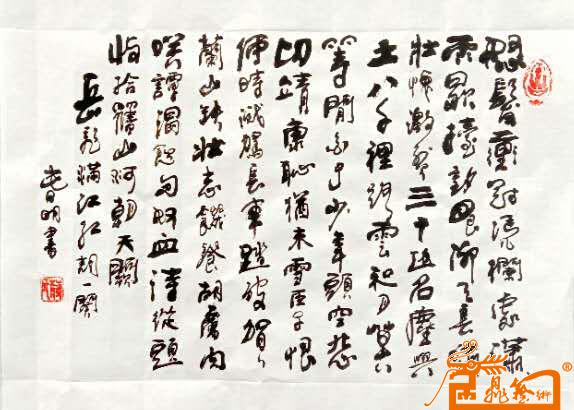 怒髮衝冠憑欄處瀟
雨歇擡望眼仰天長嘯
壯懷激烈三十功名塵與
土八千裡路雲和月莫
等閒白了少年頭空悲
切靖康恥猶未雪臣子恨
何時滅駕長車踏破賀
蘭山缺壯志飢餐胡虜肉
笑譚渴飲匈奴血待從頭
收拾舊山河朝天闕
岳飛滿江紅詞一闋
明書
藝術